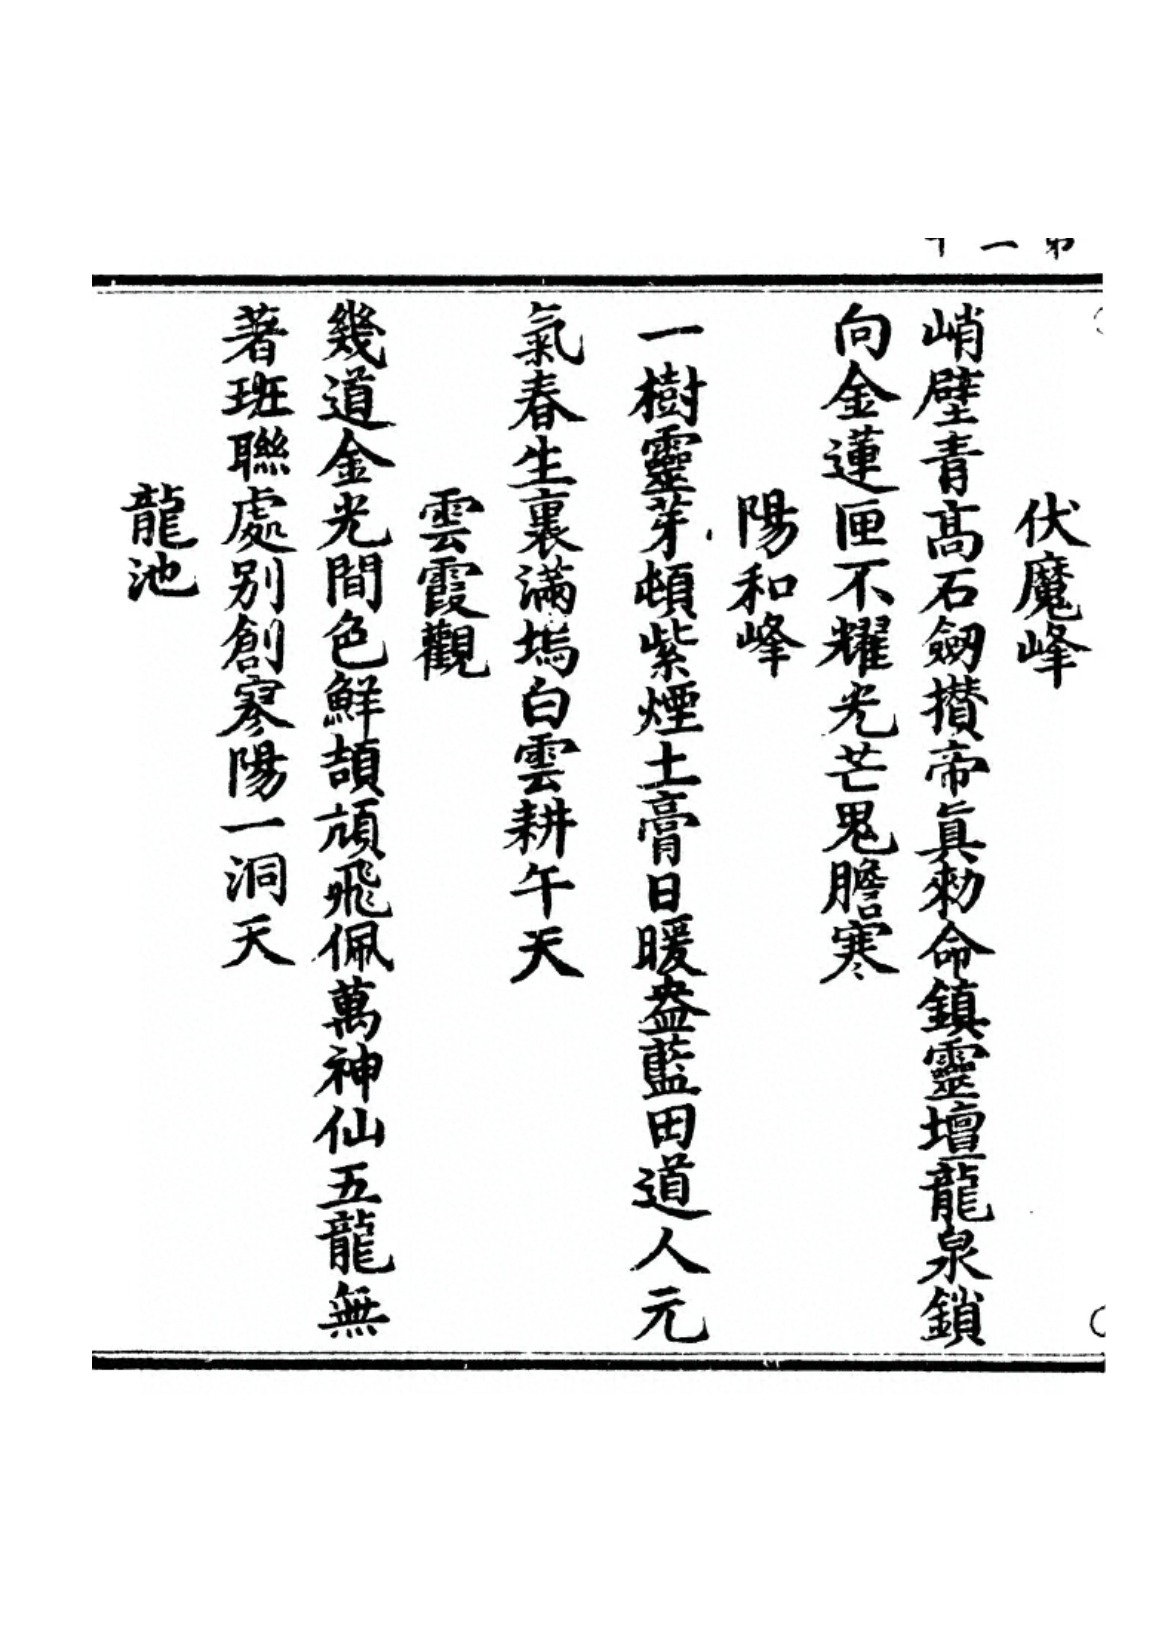 伏魔峰
峭壁青高石劒攅帝眞勑命鎮靈壇龍泉鎖
向金蓮匣不耀光芒鬼膽寒
陽和峰
一樹靈芽頓紫煙土膏日暖盎藍田道人元
氣春生裏滿塢白雲耕午天
雲霞觀
幾道金光間色鮮頡頏飛佩萬神仙五龍無
著班聯處別創寥陽一洞天
龍池